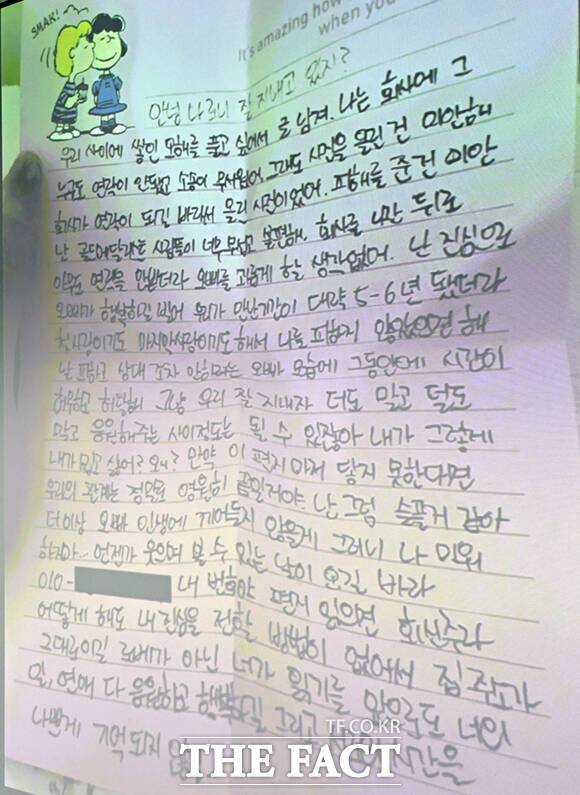 SMAK!
It's amazing how
when you
안녕 나 보니 잘 지내고 있지?
우리 사이에 쌓인 오해를 풀고 싶어서 글 남겨. 나는 회사에 그
누구도 연락이 안됐고 소송이 무서웠어. 그래도 사진을 올린 건 미안해
회사가 연락이 되길 바라서 올린 사진이었어. 피해를 준 건 미안
난 골드메달리스트 사람들이 너무 무섭고 불편해. 회사를 나간 뒤로
아무도 연락을 안받더라 오빠를 괴롭게 할 생각없어. 난 진심으로
오빠가 행복하길 빌어 우리가 만난기간이 대략 5-6년 됐더라
첫사랑이기도 마지막사랑이기도 해서 나를 피하지 않았으면 해
날 피하고 상대 조차 안하려는 오빠 모습에 그동안에 시간이
허무하고 허탈해 그냥 우리 잘 지내자 더도 말고 덜도
말고 응원해주는 사이정도는 될 수 있잖아 내가 그렇게
내가 밉고 싫어? 왜? 만약 이 편지마저 닿지 못한다면
우리의 관계는 정말로 영원히 끝일거야. 난 그럼 슬플거 같아
더이상 오빠 인생에 끼어들지 않을게 그러니 나 미워
하지마.. 언젠가 웃으며 볼 수 있는 날이 오길 바라
010- 내 번호야 편지 읽으면 회신주라
어떻게 해도 내 진심을 전할 방법이 없어서 집 주소가
그대로이길 로베가 아닌 너가 읽기를 앞으로도 너의
일, 연애 다 응원하고 행복하길 그리고 시간을
나쁘게 기억되지
TF.CO.KR
THE FACT